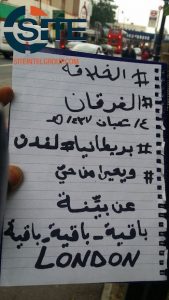 SITE
SITEINTELGROUP.COM
#الخلافة
#الفرقان
١٤ شعبان ١٤٣٧ هـ
#بريطانيا #لندن
#ويحيا من حيّ
عن بيّنة
باقية - باقية - باقية
LONDON